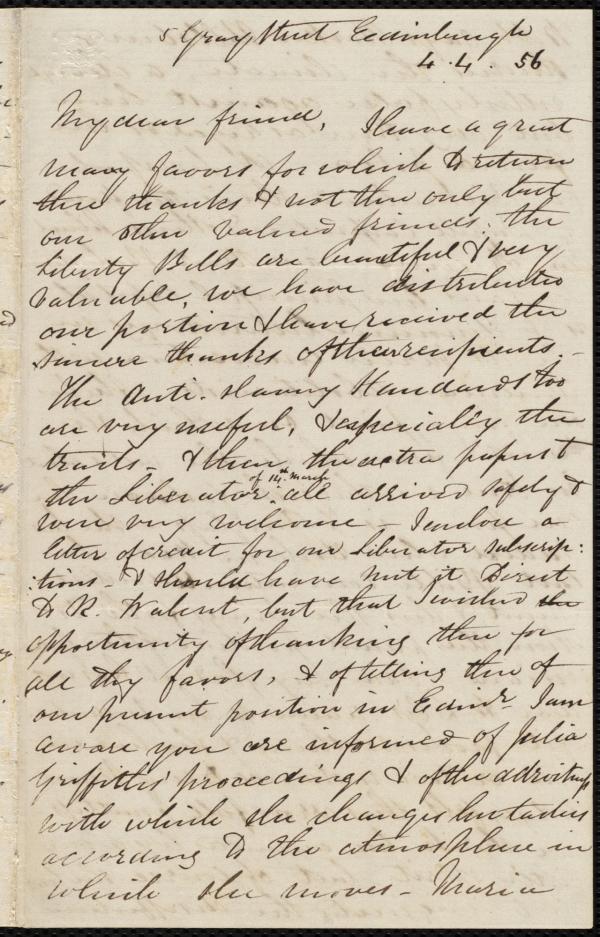 5 Gray Street Edinburgh
4.4.56
My dear friend, I have a great
many favors for which to return
thee thanks & not thee only but
our other valued friends. The
Liberty Bells are beautiful & very
valuable, we have distributed
our portion & have received the
sincere thanks of their recipients. -
The Anti-slavery Standards too
are very useful, & especially the
tracts - & then the extra papers &
the Liberator of 14th March all arrived safely &
were very welcome - I enclose a
letter of credit for our Liberator subscrip:
:tions - & should have sent it Direct
to R. Walcut, but that I wished the
opportunity of thanking thee for
all thy favors, & of telling thee of
our present position in Edinr. I am
aware you are informed of Julia
Griffiths' proceedings & of the adroitness
with which she changes her tactics
according to the atmosphere in
which she moves - Maria